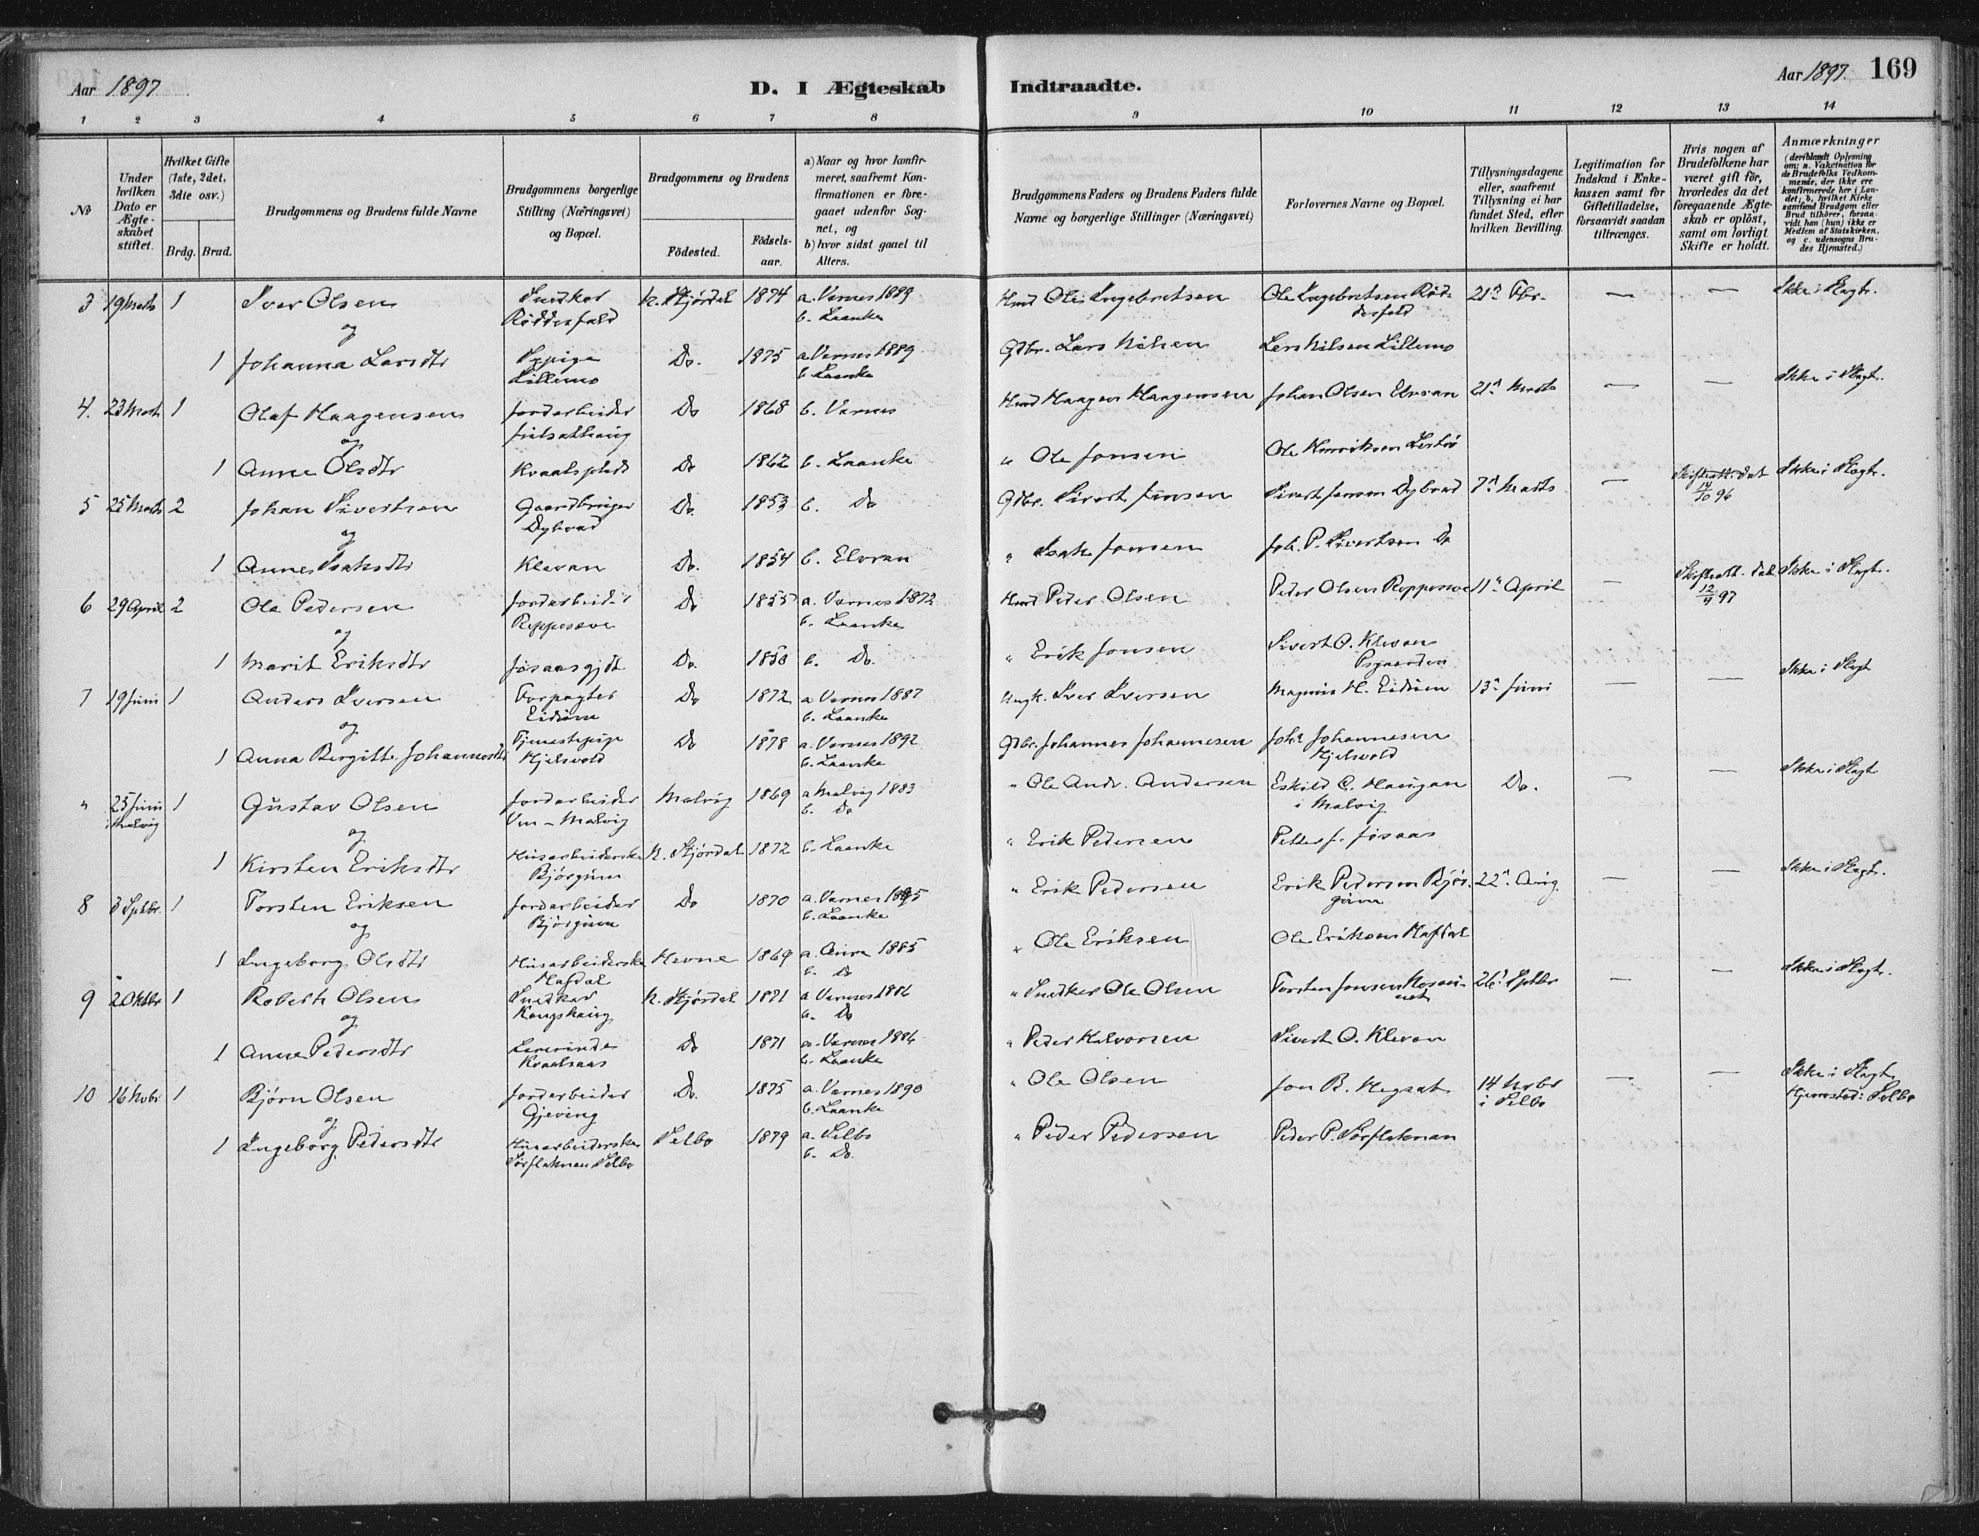 Aar 1897. D. I Ægteskab Indtraadte. Aar 1897. 169
1 2 3 4 5 6 7 8 9 10 11 12 13 14
№
Under hvilken Dato er Ægteskabet stiftet.
Hvilket Gifte (1ste, 2det, 3die osv.)
Brdg. Brud.
Brudgommens og Brudens fulde Navne
Brudgommens borgerlige Stilling (Næringsvei) og Bopæl.
Brudgommens og Brudens
Födested. Födselsaar.
a) Naar og hvor konfirmeret, saafremt Konfirmationen er foregaaet udenfor Sognet, og
b) hvor sidst gaael til Alters.
Brudgommens Faders og Brudens Faders fulde Navne og borgerlige Stillinger (Næringsvei)
Forlovernes Navne og Bopæl.
Tillysningsdagene eller, saafremt Tillysning ei har fundet Sted, efter hvilken Bevilling.
Legitimation for Indskud i Enkekassen samt for Giftetilladelse, forsaavidt saadan tiltrænges.
Hvis nogen af Brudefolkene har været gift för, hvorledes da det foregaaende Ægteskab er oplöst, samt om lovligt Skifte er holdt.
Anmærkninger (deriblandt Oplysning om: a. Vakcination for de Brudefolks Vedkommende, der ikke ere konfirmerede her i Landet; b. hvilket Kirkesamfund Brudgom eller Brud tilhörer, forsaavidt han (hun) ikke er Medlem af Statskirken, og c. udensogns Brudes Hjemsted.)
3 19 Marts 1 Iver Olsen Snedker Röddesfald N. Stjördal 1874 a. Vernes 1889 b. Laanke Hmd Ole Ingebretsen Ole Ingebretsen Röddesfald 21. Fbr. — — Ikke i Slagt.
og
1 Johanna Larsdtr Pige Lillemo Do. 1875 a Vernes 1889 b. Laanke Gdbr. Lars Nilsen Lars Nilsen Lillemo
4. 23 Marts 1 Olaf Haagensen Jordarbeider Do 1868 b. Vernes Hmd Haagen Haagensen Johan Olsen Elvran 21. Marts — — Ikke i Slagt.
og
1 Anne Olsdtr Kvaalsplads Do 1862 b. Laanke " Ole Jonsen Ole Henriksen
5 25 Marts 2 Johan Sivertsen Gaardbruger Dybvad Do. 1853 b. Do Gdbr. Sivert Jonsen Sivert Jonsen Dybvad 7. Marts — Skifteatt. dat 14/10 96 Ikke i Slagt.
og
1 Anne Isaksdtr Klevan Do. 1854 b. Elvran " Isak Jonsen Joh. P. Sivertsen Do
6 29 April 2 Ole Pedersen Jordarbeider Reppesave Do 1855 a. Vernes 1872 b. Laanke Hmd Peder Olsen Peder Olsen Reppesave 11. April — Skifteatt. dat 12/4 97 Ikke i Slagt.
og
1 Marit Eriksdtr Jøsaasgjdt Do. 1850 b. Do. " Erik Jonsen Sivert O. Klevan
7 19 Juni 1 Anders Iversen Forpagter Eidum Do 1872 a Vernes 1887 b. Laanke Ungk. Iver Iversen Magnus H. Eidum 13. Juni — — Ikke i Slagt
og
1 Anna Bergitte Johannesdtr Tjenestepige Hjelsvold Do 1878 a. Vernes 1892 b. Laanke Gdbr. Johannes Johannesen Johs Johannesen Hjelsvold
" 25 Juni i Malvig 1 Gustav Olsen Jordarbeider Malvig Malvig 1869 a Malvig 1883 b. Do " Ole Andr. Andersen Eskild C. Haugan i Malvig Do. — — Ikke i Slagt
og
1 Kirsten Eriksdtr Husarbeiderske Björgum N. Stjördal 1872 b. Laanke " Erik Pedersen Petter J. Jøsaas
8 3 Septbr. 1 Torsten Eriksen Jordarbeider Björgum Do 1870 a. Vernes 1885 b. Laanke " Erik Pedersen Erik Pedersen Björgum 22. Aug. — — Ikke i Slagt.
og
1 Ingeborg Olsdtr Husarbeiderske Hafdal Hevne 1869 a. Aure 1885 b. Do " Ole Eriksen Ole Eriksen Hafdal
9 2 Oktbr 1 Robert Olsen Snedker Kongshaug N. Stjördal 1871 a Vernes 1886 b. Do " Snedker Ole Olsen Torsten Jonsen 26. Septbr — — Ikke i Slagt.
og
1 Anne Pedersdtr Lærerinde Kvaalsaas Do 1871 a. Vernes 1886 b. Laanke " Peder Halvorsen Sivert O. Klevan
10 16 Novbr 1 Björn Olsen Jordarbeider Gjeving Do. 1875 a. Vernes 1890 b. Laanke " Ole Olsen Jon B. Hegsat 14 Novbr i Selbo — — Ikke i Slagt Hjemsted: Selbo
og
1 Ingeborg Pedersdtr Husarbeiderske Sørflaknan Selbo Selbo 1879 a. Selbo b. Do. " Peder Pedersen Peder P. Sørflaknan